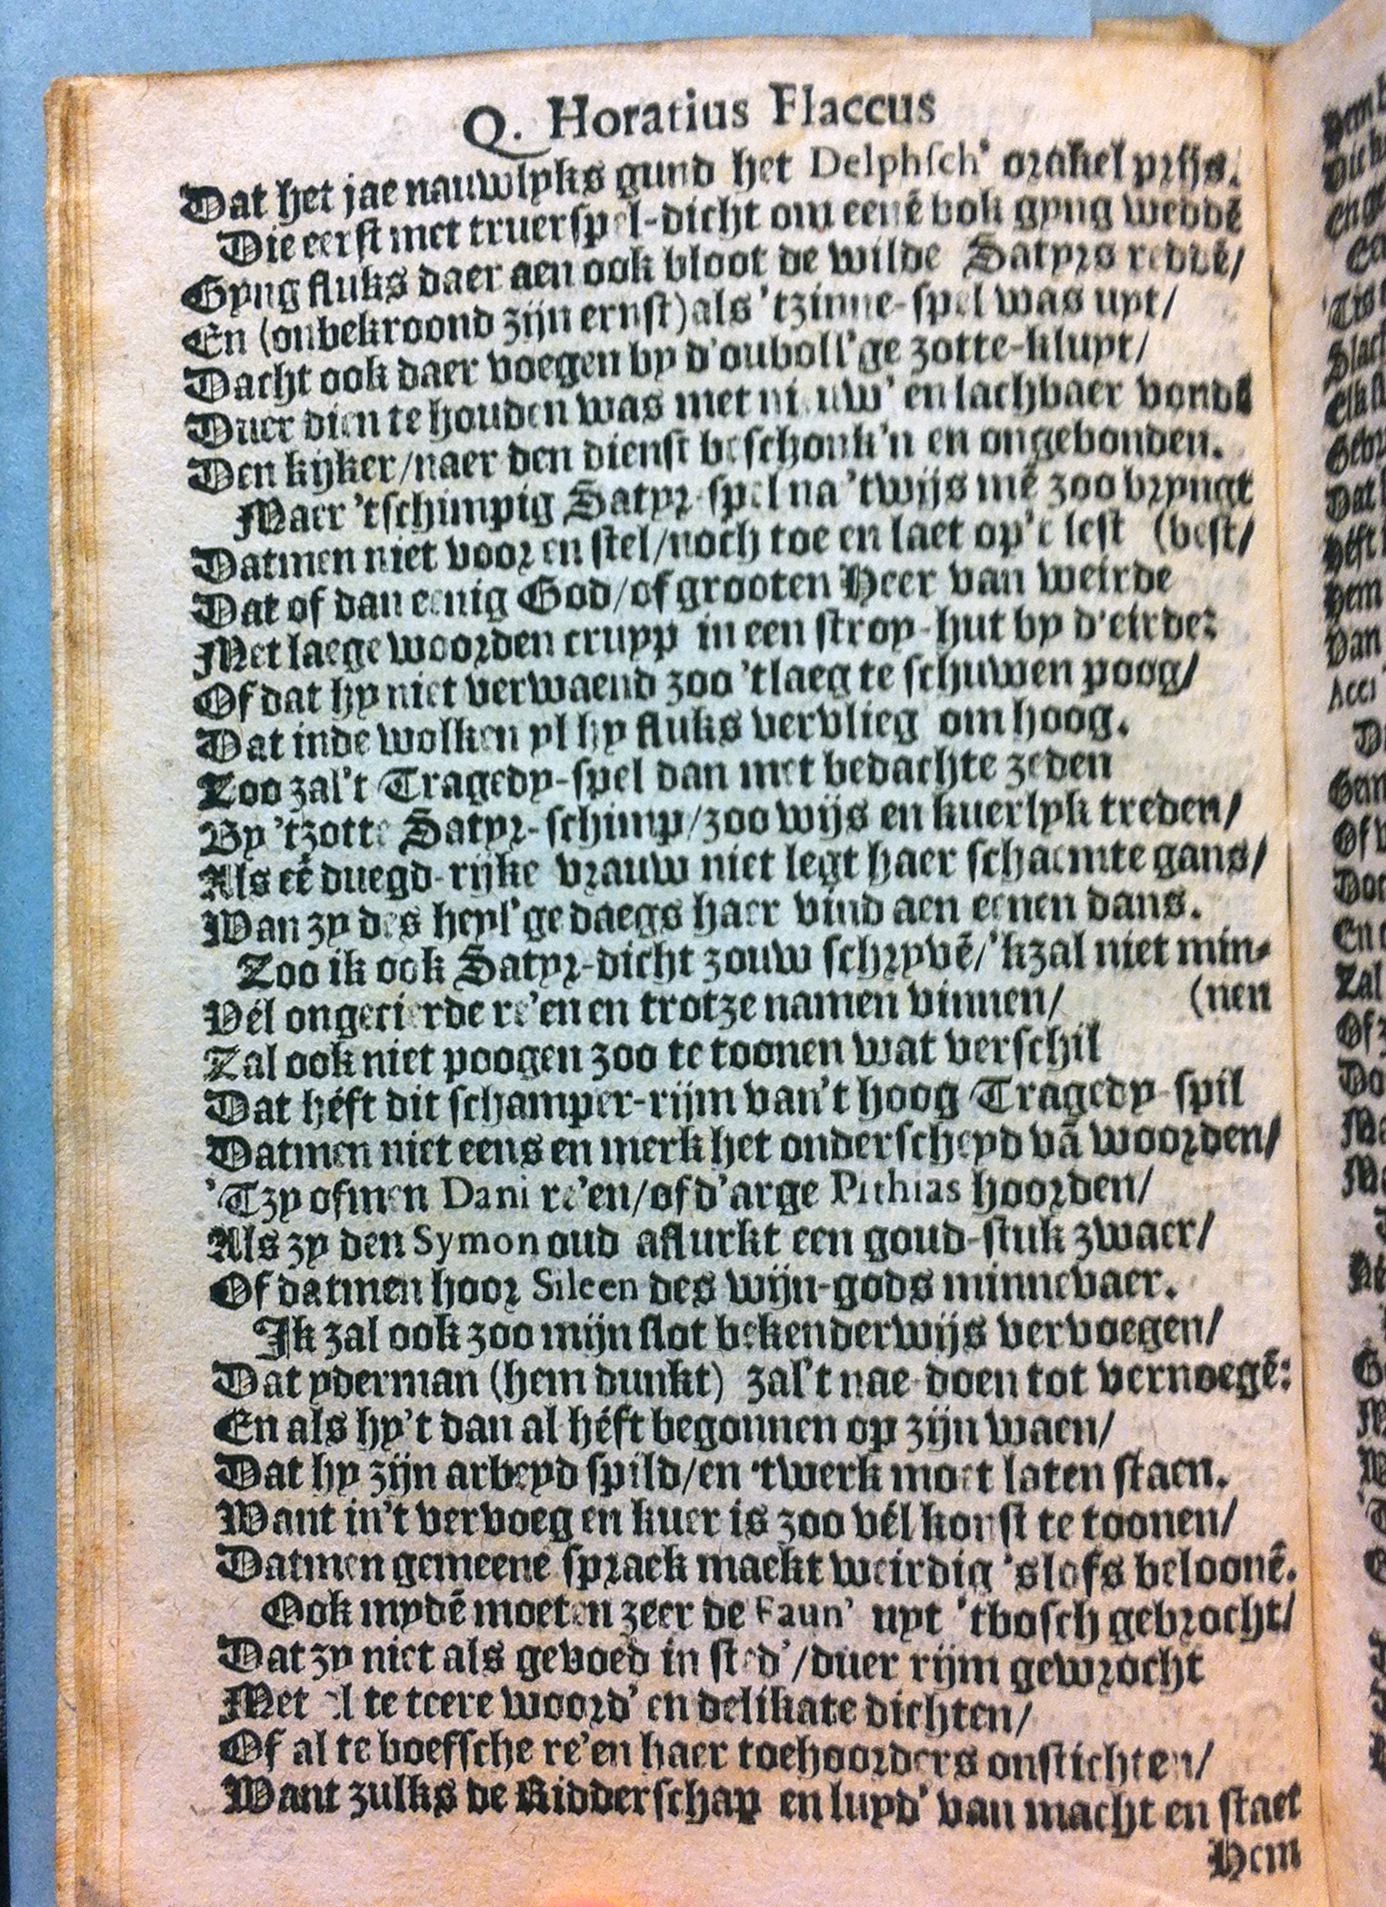 Q. Horatius Flaccus
Dat het jae nauwlyks gund het Delphsch' orakel prijs.
Die eerst met truerspel-dicht om eenē bok gyng weddē
Gyng fluks daer aen ook bloot de wilde Satyrs reddē/
En (onbekroond zijn ernst) als 'tzinne-spel was uyt/
Dacht ook daer voegen by d'ouboll'ge zotte-kluyt/
Duer dien te houden was met nieuw' en lachbaer vondē
Den kijker/naer den dienst beschonk'n en ongebonden.
Maer 'tschimpig Satyr-spel na 'twijs mē zoo bryngt
Datmen niet voor en stel/noch toe en laet op't lest (best/
Dat of dan eenig God/of grooten Heer van weirde
Met laege woorden cruyp in een stroy-hut by d'eirde:
Of dat hy niet verwaend zoo 'tlaeg te schuwen poog/
Dat inde wolken yl hy fluks vervlieg om hoog.
Zoo zal't Tragedy-spel dan met bedachte zeden
By 'tzotte Satyr-schimp/zoo wijs en kuerlyk treden/
Als eē duegd-rijke vrauw niet legt haer schaemte gans/
Wan zy des heyl'ge daegs haer vind aen eenen dans.
Zoo ik ook Satyr-dicht zouw schryvē/'kzal niet min-
Vél ongecierde re'en en trotze namen vinnen/ (nen
Zal ook niet poogen zoo te toonen wat verschil
Dat héft dit schamper-rijm van't hoog Tragedy-spil
Datmen niet eens en merk het onderscheyd vā woorden/
'Tzy ofmen Dani re'en/of d'arge Pithias hoorden/
Als zy den Symon oud aflurkt een goud-stuk zwaer/
Of datmen hoor Sileen des wijn-gods minnevaer.
Ik zal ook zoo mijn slot bekenderwijs vervoegen/
Dat yderman (hem dunkt) zal't nae-doen tot vernoegē:
En als hy't dan al héft begonnen op zijn waen/
Dat hy zijn arbeyd spild/en 'twerk moet laten staen.
Want in't vervoeg en kuer is zoo vél konst te toonen/
Datmen gemeene spraek maekt weirdig 'slofs beloonē.
Ook mydē moeten zeer de Faun' uyt 'tbosch gebrocht/
Dat zy niet als gevoed in sted'/duer rijm gewrocht
Met al te teere woord' en delikate dichten/
Of al te boefsche re'en haer toehoorders onstichten/
Want zulks de Ridderschap en luyd' van macht en staet
Hem